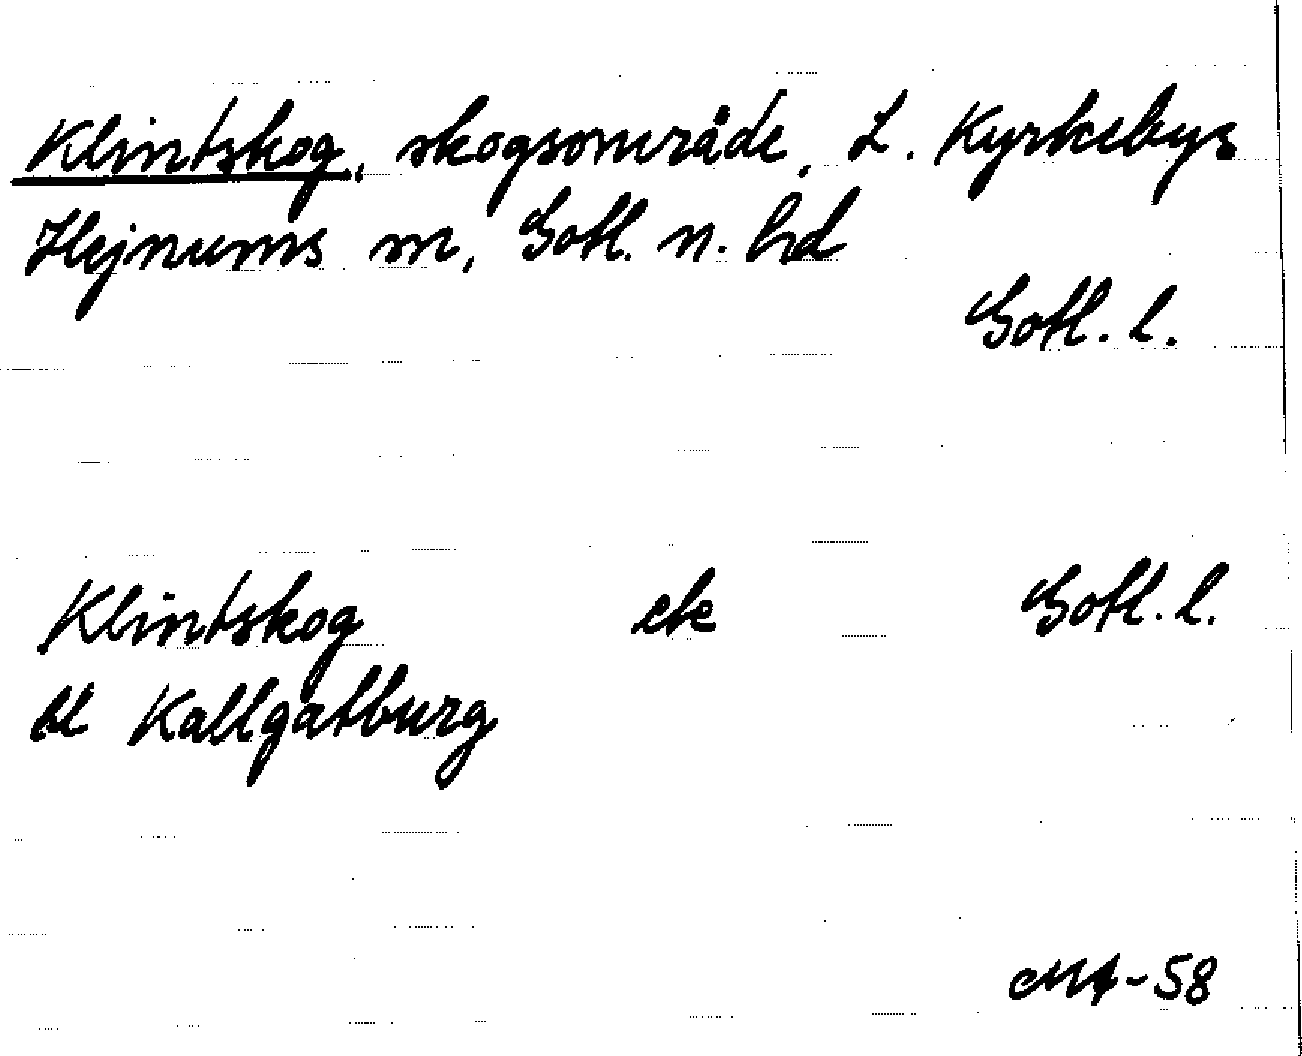 Klintskog, skogsområde, L. Kyrkebys
Hejnums sn, Gotl. n. hd
Gotl. l.
Klintskog ek Gotl. l.
bl Kallgatburg
58